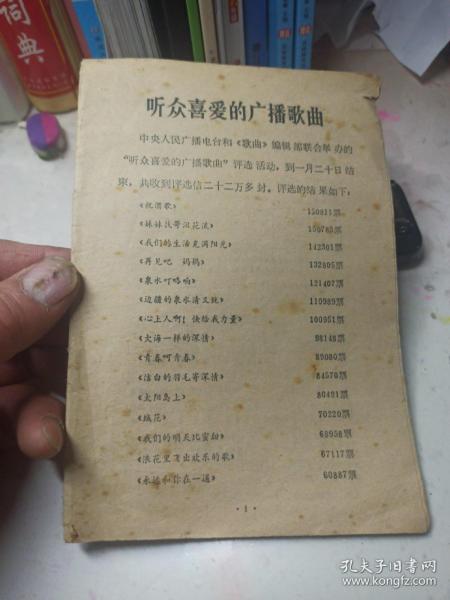 词典
听众喜爱的广播歌曲
中央人民广播电台和《歌曲》编辑部联合举办的
“听众喜爱的广播歌曲”评选活动，到一月二十日结
束，共收到评选信二十二万多封。评选的结果如下：
《祝酒歌》 150811票
《妹妹找哥泪花流》 150783票
《我们的生活充满阳光》 142301票
《再见吧 妈妈》 132805票
《泉水叮咚响》 121407票
《边疆的泉水清又纯》 110989票
《心上人啊！快给我力量》 100951票
《大海一样的深情》 98148票
《青春呵青春》 89080票
《洁白的羽毛寄深情》 84570票
《太阳岛上》 80491票
《绒花》 70220票
《我们的明天比蜜甜》 68958票
《浪花里飞出欢乐的歌》 67117票
《永远和你在一道》 60887票
·1·
孔夫子旧书网
www.kongfz.com